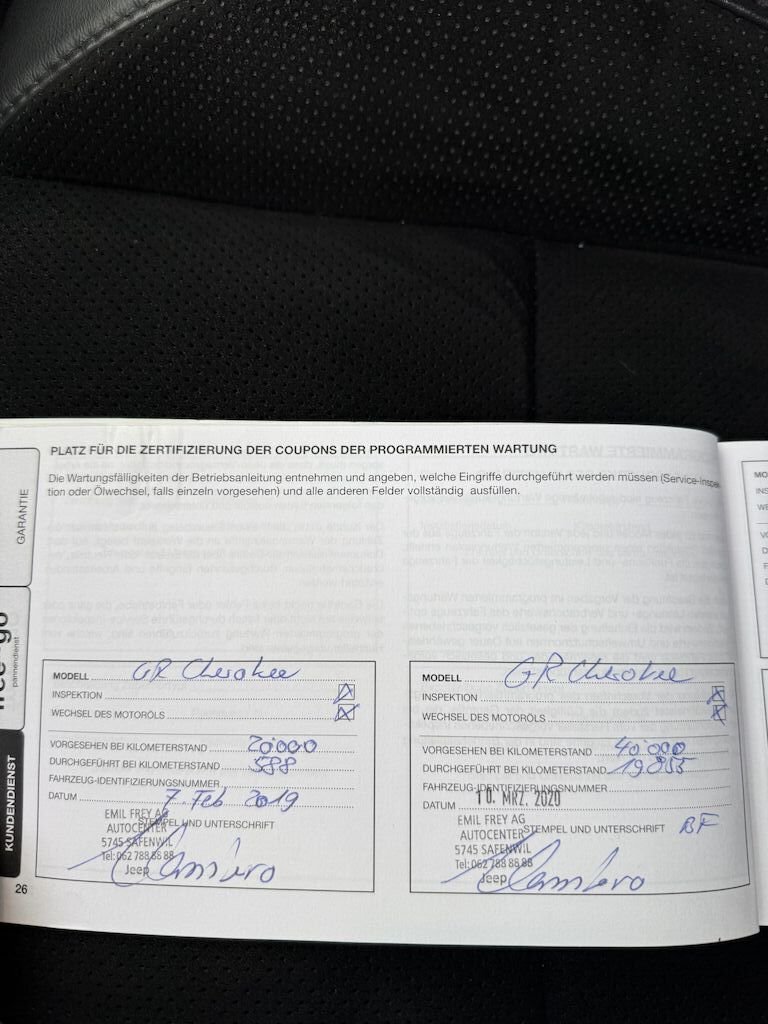 PLATZ FÜR DIE ZERTIFIZIERUNG DER COUPONS DER PROGRAMMIERTEN WARTUNG
Die Wartungsfälligkeiten der Betriebsanleitung entnehmen und angeben, welche Eingriffe durchgeführt werden müssen (Service-Inspek-
tion oder Ölwechsel, falls einzeln vorgesehen) und alle anderen Felder vollständig ausfüllen.
GARANTIE
pannendienst
KUNDENDIENST
26
MODELL GR Cherokee
INSPEKTION
WECHSEL DES MOTORÖLS
VORGESEHEN BEI KILOMETERSTAND 20'000
DURCHGEFÜHRT BEI KILOMETERSTAND 588
FAHRZEUG-IDENTIFIZIERUNGSNUMMER
DATUM 7. Feb 2019
EMIL FREY AG
AUTOCENTER
STEMPEL UND UNTERSCHRIFT
5745 SAFENWIL
Tel: 062 788 88 88
Jeep
MODELL GR Cherokee
INSPEKTION
WECHSEL DES MOTORÖLS
VORGESEHEN BEI KILOMETERSTAND 40'000
DURCHGEFÜHRT BEI KILOMETERSTAND
FAHRZEUG-IDENTIFIZIERUNGSNUMMER
DATUM 10. MRZ. 2020
EMIL FREY AG
AUTOCENTER
STEMPEL UND UNTERSCHRIFT BF
5745 SAFENWIL
Tel: 062 788 88 88
Jeep